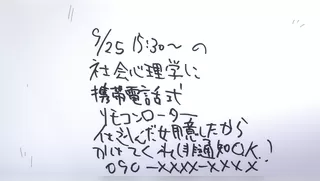 9/25 15:30～の
社会心理学に
携帯電話式
リモコンローター
仕込んだ女用意したから
かけてくれ(非通知OK!)
090-XXXX-XXXX